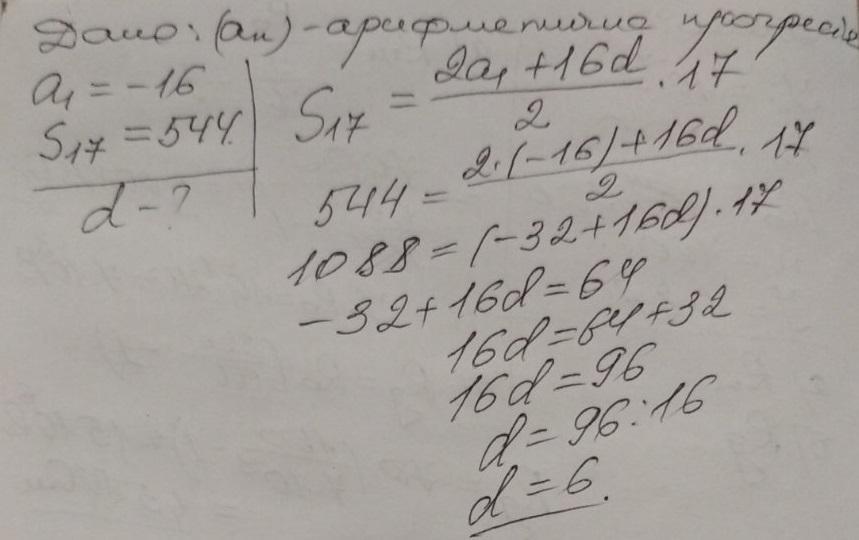 Дано: (aₙ) - арифметична прогресія
a₁ = -16
S₁₇ = 544.
d - ?
S₁₇ = (2a₁ + 16d)/2 · 17
544 = (2·(-16) + 16d)/2 · 17
1088 = (-32 + 16d) · 17
-32 + 16d = 64
16d = 64 + 32
16d = 96
d = 96 : 16
d = 6.